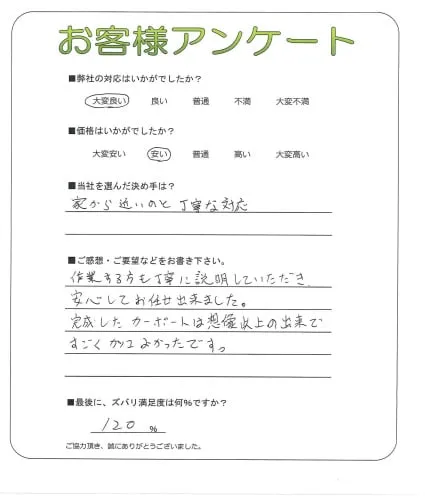 お客様アンケート
■弊社の対応はいかがでしたか?
大変良い 良い 普通 不満 大変不満
■価格はいかがでしたか?
大変安い 安い 普通 高い 大変高い
■当社を選んだ決め手は?
家から近いのと丁寧な対応
■ご感想・ご要望などをお書き下さい。
作業する方も丁寧に説明していただき、
安心してお任せ出来ました。
完成したカーポートは想像以上の出来で
すごくかっこよかったです。
■最後に、ズバリ満足度は何%ですか?
120 %
ご協力頂き、誠にありがとうございました。